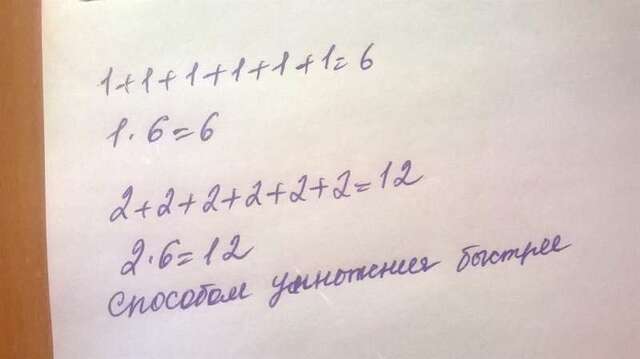 1+1+1+1+1+1=6
1·6=6
2+2+2+2+2+2=12
2·6=12
способом умножения быстрее